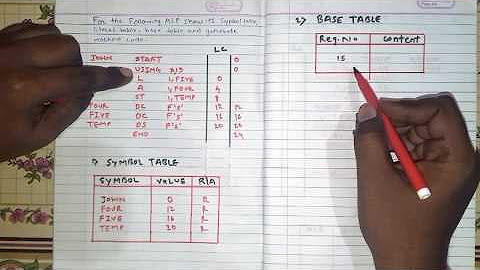 For the Following ALP show its Symbol table,
literal table, base table and generate
machine code.
LC
JOHN START 0
USING 15 0
L 1, FIVE 0
A 1, FOUR 4
ST 1, TEMP 8
FOUR DC F'5' 12 12
FIVE DC F'5' 16 16
TEMP DS F'5' 20 20
END 24
1) SYMBOL TABLE
SYMBOL VALUE R/A
JOHN 0 R
FOUR 12 R
FIVE 16 R
TEMP 20 R
2) BASE TABLE
Reg. No Content
15